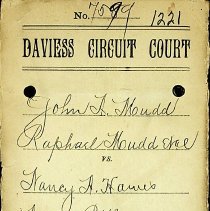 No. 7599 1221
DAVIESS CIRCUIT COURT
John L. Mudd
Raphael Mudd &c
vs.
Nancy H. Hawes